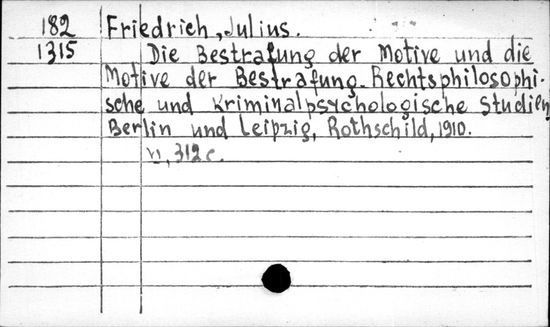 182 Friedrich, Julius.
1315 Die Bestrafung der Motive und die
Motive der Bestrafung. Rechtsphilosophi-
sche und Kriminalpsychologische Studien
Berlin und Leipzig, Rothschild, 1910.
VI, 312 c.